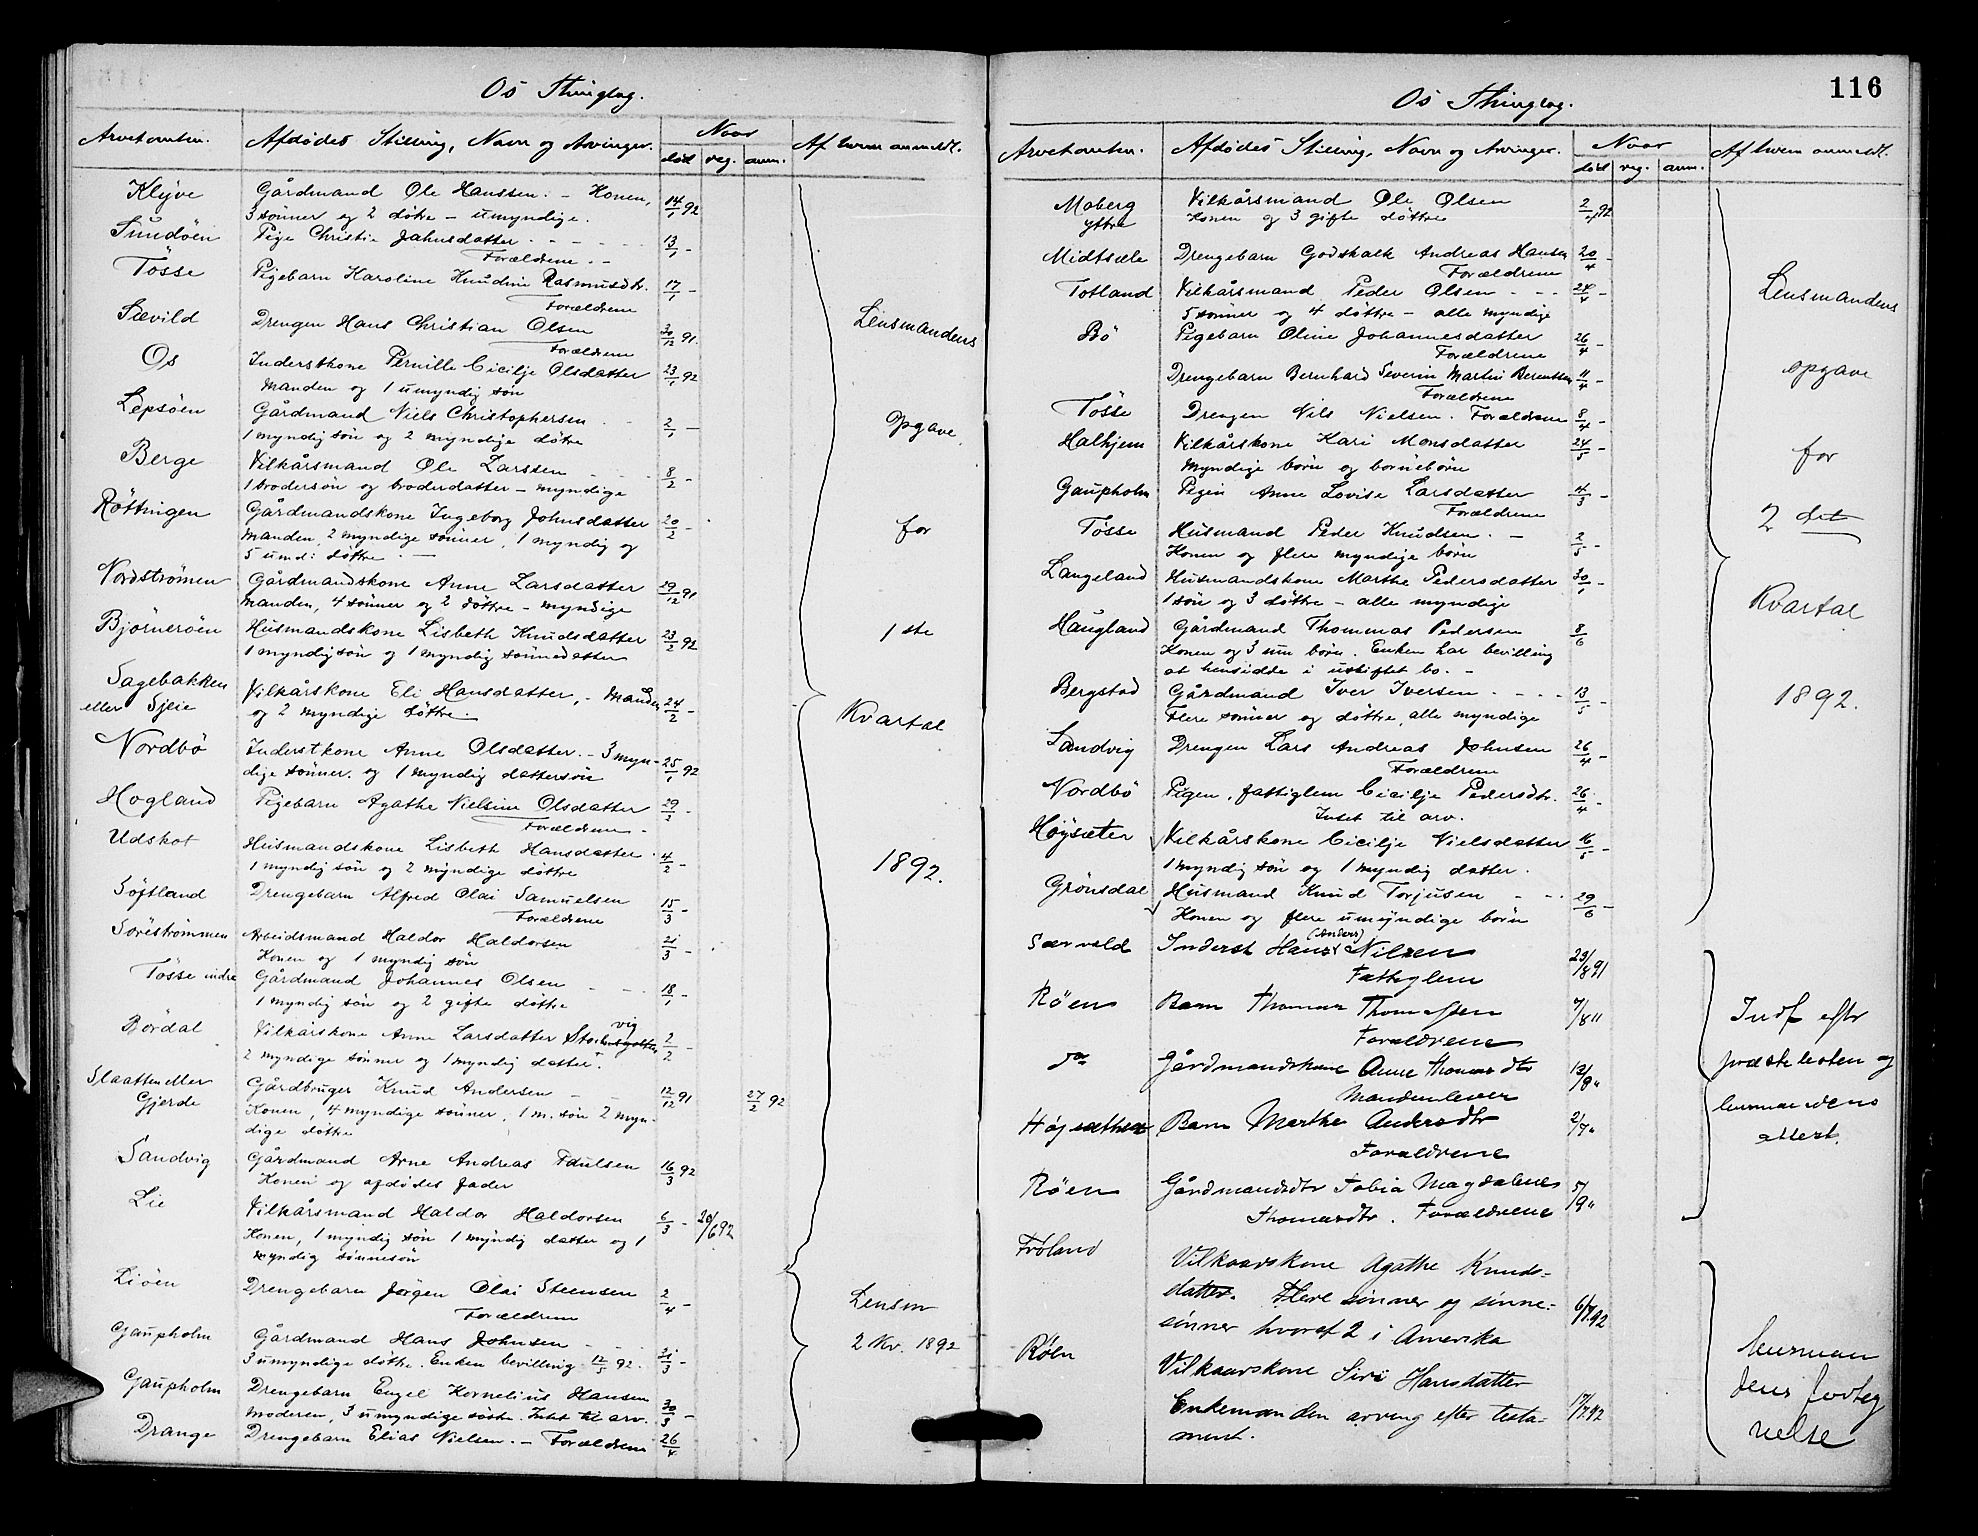 Os Thinglag.
Arvetomten. Afdødes Stilling, Navn og Arvinger. Naar Af hvem anmeldt.
død reg. anm.
Klyve Gårdmand Ole Hanssen. - Konen, 14/1 92
3 sønner og 2 døtre - umyndige.
Sundöen Pige Christie Jahnsdatter - - - - 13/1 -
Forældrene. -
Tösse Pigebarn Karoline Knudine Rasmusdtr. 17/1 -
Forældrene
Sævild Drengen Hans Christian Olsen 30/12 91.
Forældrene
Os Inderstkone Pernille Cicilje Olsdatter 23/1 92
manden og 1 umyndig søn
Lepsöen Gårdmand Niels Christophersen 2/1 -
1 myndig søn og 2 myndige døtre
Berge Vilkårsmand Ole Larssen - - - 8/2 -
1 brodersøn og broderdatter - myndige
Röttingen Gårdmandskone Ingeborg Johnsdatter 20/2
manden, 2 myndige sønner, 1 myndig og
5 umd: døtre. -
Nordströmen Gårdmandskone Anne Larsdatter 29/12 91
manden, 4 sønner og 2 døtre - myndige
Björneröen Husmandskone Lisbeth Knudsdatter 23/2 92
1 myndig søn og 1 myndig sønnedatter
Sagebakken
eller Sjeie Vilkårskone Eli Hansdatter, - Manden 24/2 -
og 2 myndige døtre.
Nordbö Inderstkone Anne Olsdatter. - 3 myn- 25/1 92
dige sønner. og 1 myndig dattersøn
Hogland Pigebarn Agathe Nielsine Olsdatter 29/2 -
Forældrene -
Udskot Husmandskone Lisbeth Hansdatter 4/2 -
1 myndig søn og 2 myndige døtre
Söftland Drengebarn Alfred Olai Samuelsen 15/3 -
Forældrene
Söreströmmen Arbeidsmand Haldor Haldorsen 21/3 -
Konen og 1 myndig søn
Tösse indre Gårdmand Johannes Olsen - - - 18/1 -
1 myndig søn og 2 gifte døtre
Bördal Vilkårskone Anne Larsdatter vig 2/2 -
2 myndige sønner og 1 myndig datter.
Slaatten eller
Gjerde Gårdbruger Knud Andersen - - 12/12 91 27/2 92
Konen, 4 myndige sønner, 1 m. søn 2 myn-
dige døtre
Sandvig Gårdmand Arne Andreas Paulsen 16/3 92
Konen og afdødes fader
Lie Vilkårsmand Haldor Haldorsen 6/3 - 20/6 92
Konen, 1 myndig søn 1 myndig datter og 1
myndig sønnesøn
Liöen Drengebarn Jørgen Olai Steensen 2/4 -
Forældrene
Gaupholm Gårdmand Hans Johnsen - - - 31/3 -
3 umyndige døtre. Enken bevilling 12/5 92.
Gaupholm Drengebarn Engel Kornelius Hansen 30/3 -
Moderen, 3 umyndige søstre. Intet til arv.
Drange Drengebarn Elias Nielsen. - Forældrene 26/4
Lensmandens
opgave
for
1ste
Kvartal
1892.
Lensm
2 Kv. 1892
116
Os Thinglag.
Arvetomten. Afdødes Stilling, Navn og Arvinger. Naar Af hvem anmeldt.
død reg. anm.
Moberg Vilkårsmand Ole Olsen 2/4 92
yttre Konen og 3 gifte døttre
Midtsæle Drengebarn Godskalk Andreas Hansen 20/4 -
Forældrene
Totland Vilkårsmand Peder Olsen - - - 24/4 -
5 sønner og 4 døttre - alle myndige
Bö Pigebarn Oline Johannesdatter 26/4 -
Forældrene
Drengebarn Bernhard Severin Martin Berentsen 11/4 -
Forældrene
Tösse Drengen Nils Nielsen. Forældrene 8/4 -
Halhjem Vilkårskone Kari Monsdatter 24/5 -
Myndige børn og børnebørn
Gaupholm Pigen Anne Lovise Larsdatter 4/3 -
Forældrene
Tösse Husmand Peder Knudsen. - 2/5 -
Konen og flere myndige børn
Langeland Husmandskone Marthe Pedersdatter 30/1 -
1 søn og 3 døttre - alle myndige
Haugland Gårdmand Thommas Pedersen 8/6
Konen og 3 um børn. Enken har bevilling
at hensidde i uskiftet bo. -
Bergstad Gårdmand Iver Iversen - - - - 13/5 -
Flere sønner og døttre, alle myndige
Sandvig Drengen Lars Andreas Johnsen 26/4 -
Forældrene
Nordbö Pigen, fattiglem Cicilje Pedersdtr. 26/4 -
Intet til arv.
Höysæter Vilkårskone Cicilje Nielsdatter 16/5 -
1 myndig søn og 1 myndig datter.
Grönsdal Husmand Knud Torjusen - - - 29/6 -
Konen og flere umyndige børn
(Anders)
Særvold Inderst Hans Nilsen 23/8 91
Fattiglem
Röen Barn Thomas Thomassen 7/8 "
Forældrene
do Gårdmandskone Anne Thomasdtr 13/9 "
Manden lever
Høysæther Barn Marthe Andersdtr 2/7 "
Forældrene
Röen Gårdmandsdtr Tobia Magdalene 5/9 "
Thomasdtr. Forældrene
Fröland Vilkaarskone Agathe Knuds-
datter. Flere sønner og sønne- 6/7.92
sønner hvoraf 2 i Amerika
Röen Vilkaarskone Siri Hansdatter
Enkemanden arving efter testa- 17/7.92
ment.
Lensmandens
opgave
for
2det
Kvartal
1892.
Indf efter
præstelisten og
lensmandens
attest.
lensman
dens forteg
nelse